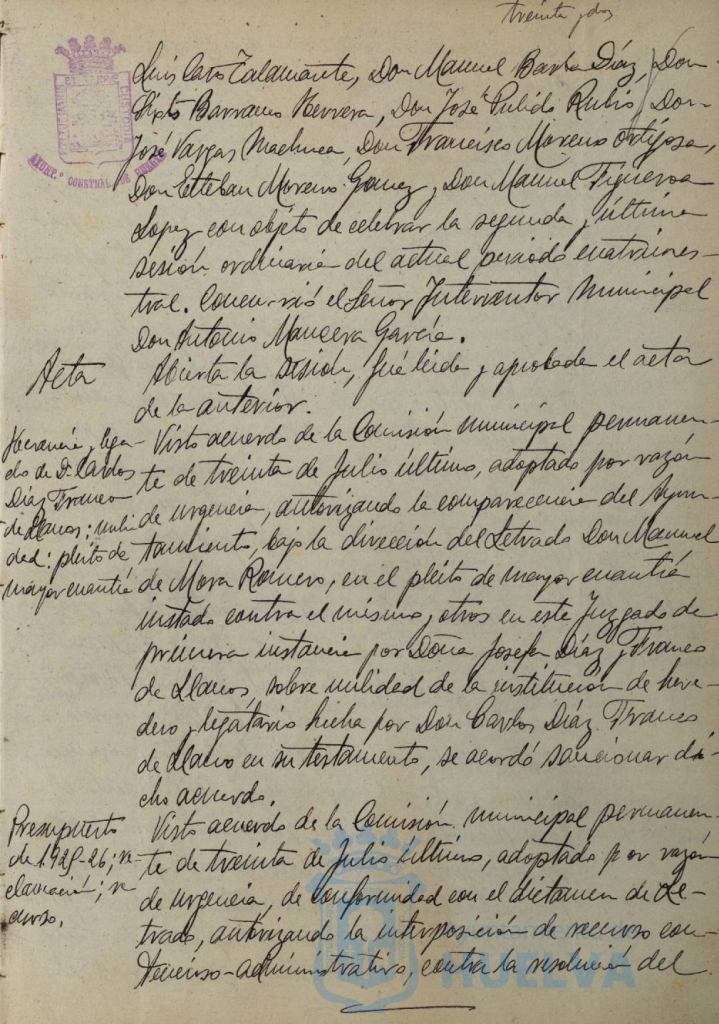 treinta y dos
Luis Caro Talamante, Don Manuel Barba Díaz, Don
Sixto Barranco Herrera, Don José Pulido Rubio, Don
José Vargas Machuca, Don Francisco Moreno Ortijosa,
Don Esteban Moreno Gomez y Don Manuel Figueroa
Lopez con objeto de celebrar la segunda y última
sesión ordinaria del actual periodo cuatrimes-
tral. Concurrió el Señor Interventor Municipal
Don Antonio Mancera García.
Acta
Abierta la sesión, fué leida y aprobada el acta
de la anterior.
Herencia y lega-
do de D. Carlos
Díaz Franco
de Llanos; nuli-
dad: pleito de
mayor cuantía
Visto acuerdo de la Comisión municipal permanen-
te de treinta de Julio último, adoptado por razón
de urgencia, autorizando la comparecencia del Ayun-
tamiento, bajo la dirección del Letrado Don Manuel
de Mora Romero, en el pleito de mayor cuantía
instado contra el mismo y otros en este Juzgado de
primera instancia por Doña Josefa Díaz y Franco
de Llanos, sobre nulidad de la institución de here-
dero y legatario hecha por Don Carlos Díaz Franco
de Llano en su testamento, se acordó sancionar di-
cho acuerdo.
Presupuesto
de 1925-26; re-
clamación; re-
curso.
Visto acuerdo de la Comisión municipal permanen-
te de treinta de Julio último, adoptado por razón
de urgencia, de conformidad con el dictamen de Le-
trado, autorizando la interposición de recurso con-
tencioso-administrativo, contra la resolución del
HUELVA